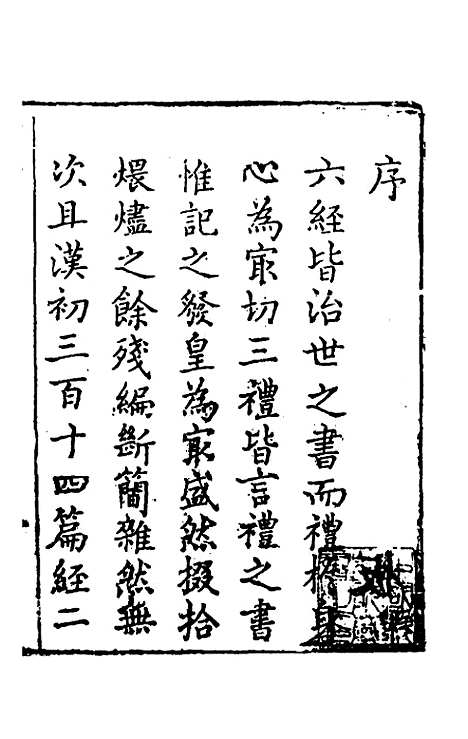 序
六經皆治世之書而禮於身
心為冣切三禮皆言禮之書
惟記之發皇為冣盛然掇拾
煨燼之餘殘編斷簡雜然無
次且漢初三百十四篇經二